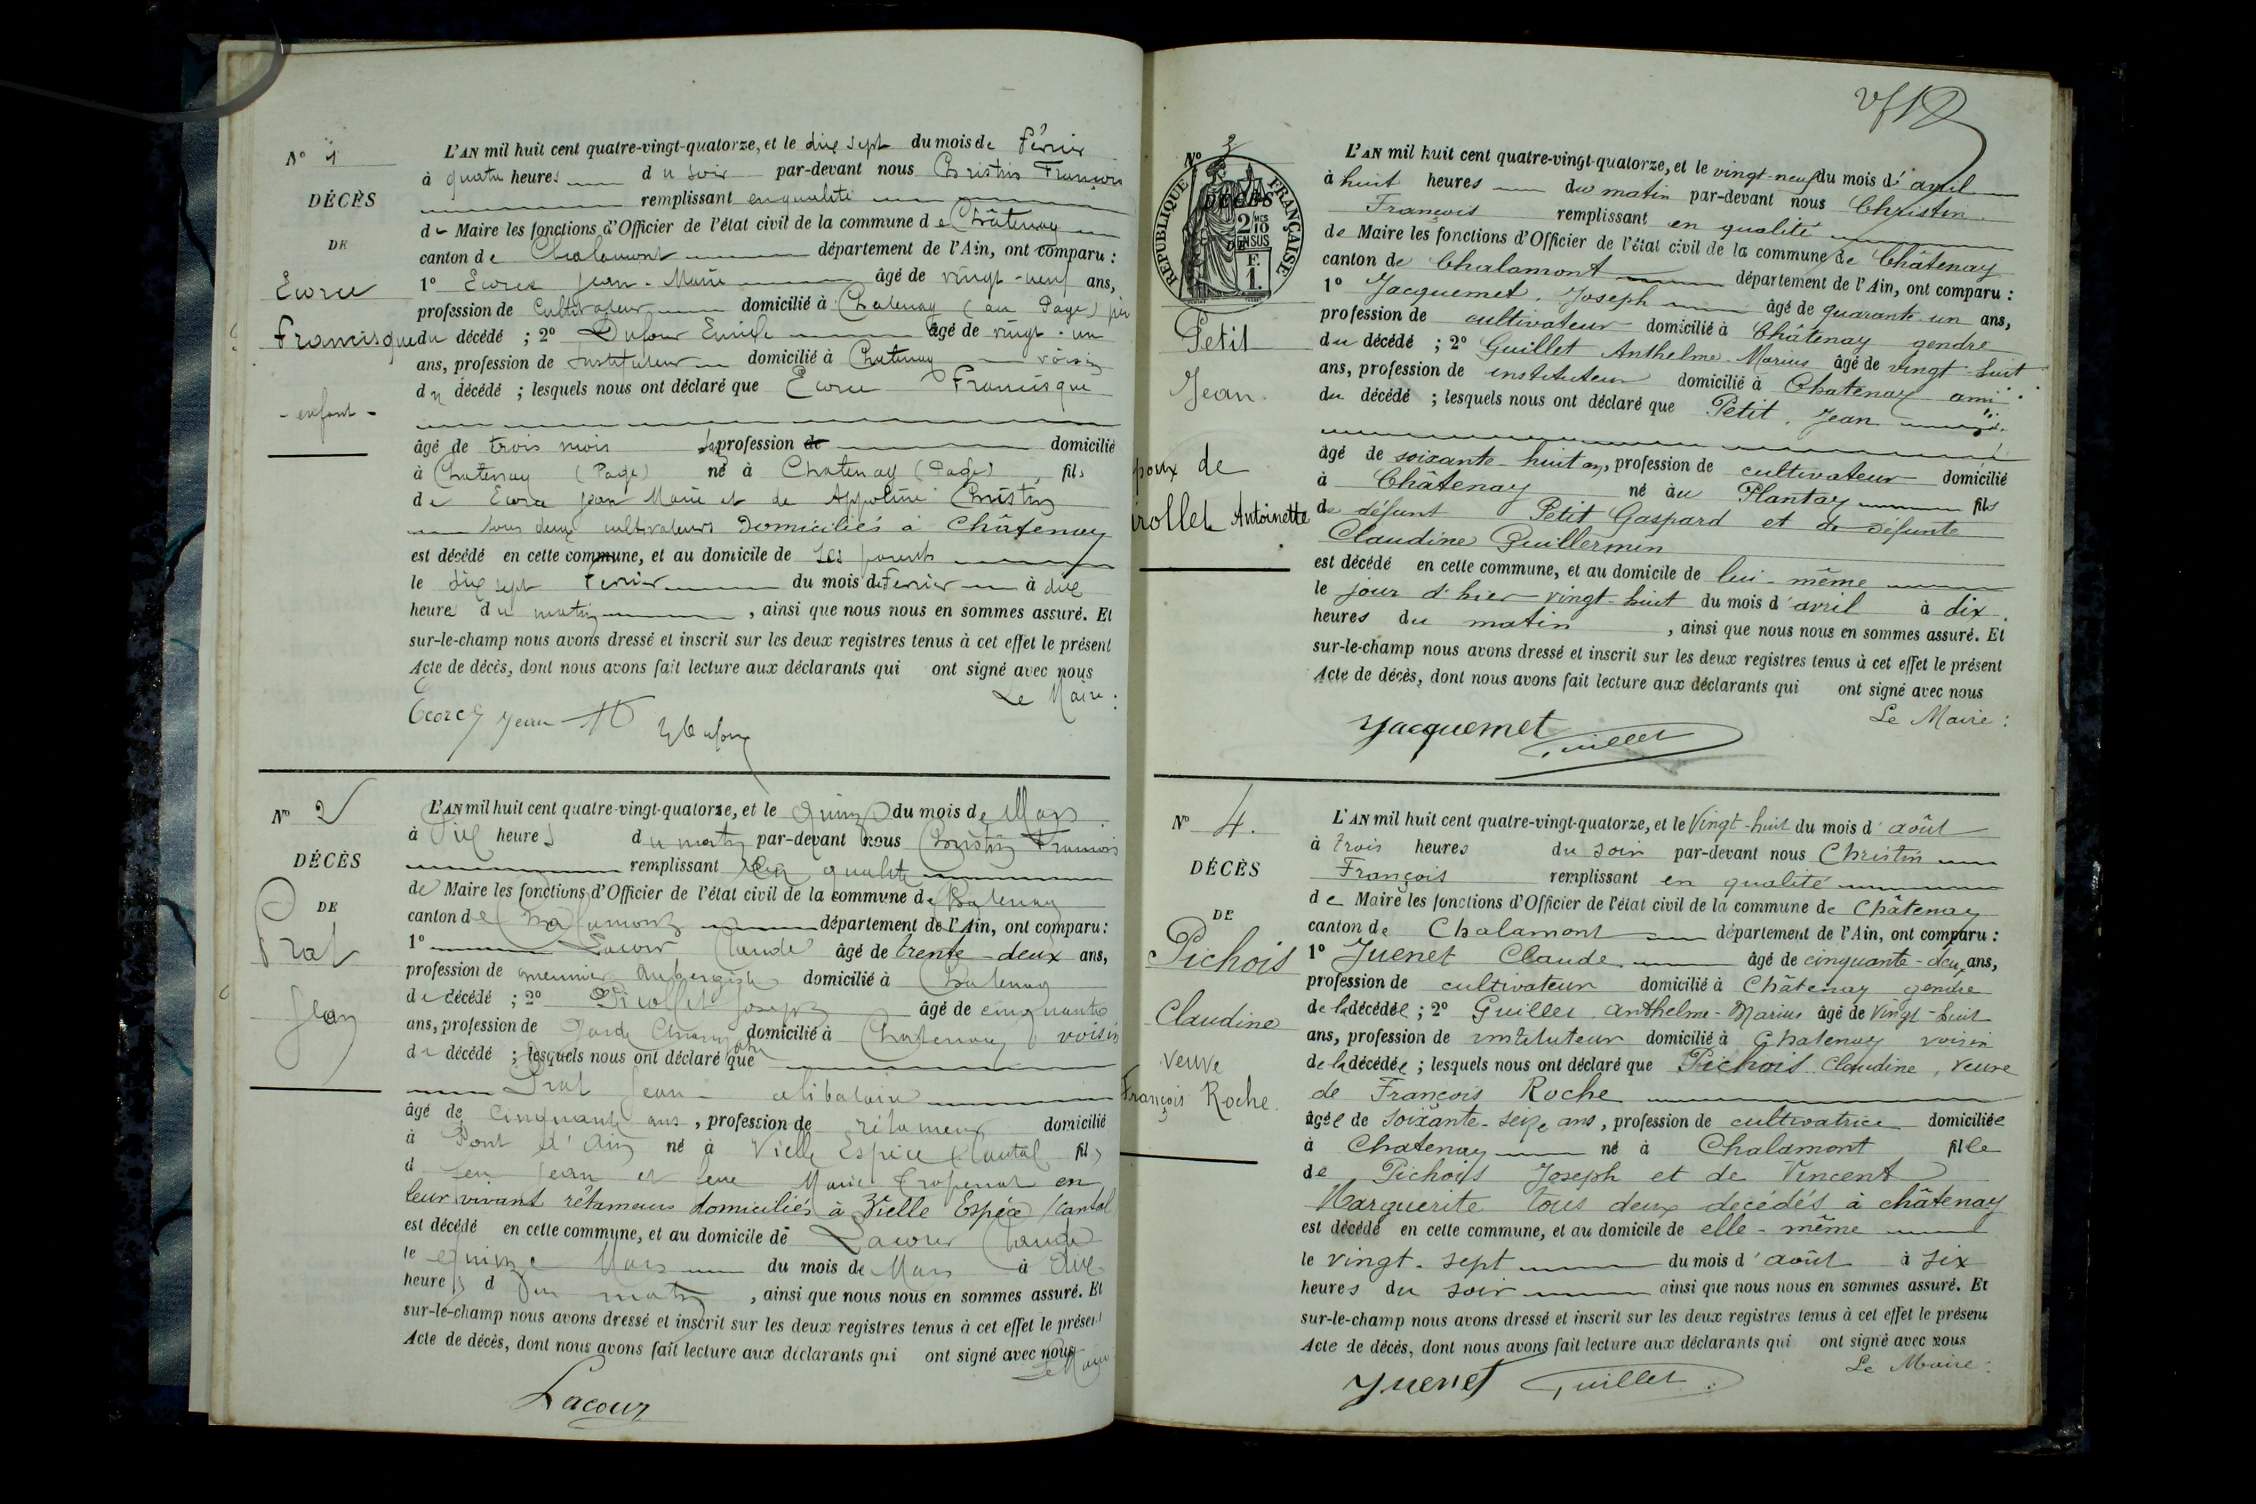 N° 1
DÉCÈS
DE
Ecorce
Francisque
- enfant -
L'AN mil huit cent quatre-vingt-quatorze, et le dix sept du mois de Février
à quatre heures du soir par-devant nous Christin François
remplissant en qualité
de Maire les fonctions d'Officier de l'état civil de la commune de Châtenay
canton de Chalamont département de l'Ain, ont comparu :
1° Ecorce Jean-Marie âgé de vingt-neuf ans,
profession de cultivateur domicilié à Chatenay (au Page) père
du décédé ; 2° Dufour Emile âgé de vingt-un
ans, profession de instituteur domicilié à Chatenay voisin
du décédé ; lesquels nous ont déclaré que Ecorce Francisque
âgé de trois mois profession de domicilié
à Chatenay (Page) né à Chatenay (Page) fils
de Ecorce Jean Marie et de Appoline Christin
tous deux cultivateurs domiciliés à Châtenay
est décédé en cette commune, et au domicile de ses parents
le dix sept Fevrier du mois de Fevrier à dix
heure du matin , ainsi que nous nous en sommes assuré. Et
sur-le-champ nous avons dressé et inscrit sur les deux registres tenus à cet effet le présent
Acte de décès, dont nous avons fait lecture aux déclarants qui ont signé avec nous
Le Maire :
Ecorce Jean M Dufour
N° 2
DÉCÈS
DE
Prat
Jean
L'AN mil huit cent quatre-vingt-quatorze, et le quinze du mois de Mars
à dix heures du matin par-devant nous Christin François
remplissant en qualité
de Maire les fonctions d'Officier de l'état civil de la commune de Chatenay
canton de Chalamont département de l'Ain, ont comparu :
1° Lacour Claude âgé de trente-deux ans,
profession de meunier aubergiste domicilié à Chatenay
de décédé ; 2° Pirollet Joseph âgé de cinquante
ans, profession de Garde Champêtre domicilié à Chatenay voisin
de décédé ; lesquels nous ont déclaré que
Prat Jean célibataire
âgé de cinquante ans , profession de rétameur domicilié
à Pont d'Ain né à Vielle Espèce Cantal fils
d feu Jean et feue Marie en
leur vivant rétameurs domiciliés à Vielle Espéce (Cantal
est décédé en cette commune, et au domicile de Lacour Claude
le quinze Mars du mois de Mars à dix
heures du matin , ainsi que nous nous en sommes assuré. Et
sur-le-champ nous avons dressé et inscrit sur les deux registres tenus à cet effet le présent
Acte de décès, dont nous avons fait lecture aux déclarants qui ont signé avec nous
Le Maire
Lacour
N° 3
DÉCÈS
REPUBLIQUE FRANÇAISE
Petit
Jean
époux de
Pirollet Antoinette
L'AN mil huit cent quatre-vingt-quatorze, et le vingt-neuf du mois d'avril
à huit heures du matin par-devant nous Christin
François remplissant en qualité
de Maire les fonctions d'Officier de l'état civil de la commune de Châtenay
canton de Chalamont département de l'Ain, ont comparu :
1° Jacquemet Joseph âgé de quarante-un ans,
profession de cultivateur domicilié à Châtenay gendre
du décédé ; 2° Guillet Anthelme-Marius âgé de vingt-huit
ans, profession de instituteur domicilié à Chatenay ami
du décédé ; lesquels nous ont déclaré que Petit Jean
âgé de soixante-huit ans, profession de cultivateur domicilié
à Châtenay né au Plantay fils
de défunt Petit Gaspard et de défunte
Claudine Guillermin
est décédé en cette commune, et au domicile de lui-même
le jour d'hier vingt-huit du mois d'avril à dix
heures du matin , ainsi que nous nous en sommes assuré. Et
sur-le-champ nous avons dressé et inscrit sur les deux registres tenus à cet effet le présent
Acte de décès, dont nous avons fait lecture aux déclarants qui ont signé avec nous
Le Maire :
Jacquemet Guillet
N° 4.
DÉCÈS
DE
Pichois
Claudine
veuve
François Roche.
L'AN mil huit cent quatre-vingt-quatorze, et le vingt-huit du mois d'août
à trois heures du soir par-devant nous Christin
François remplissant en qualité
de Maire les fonctions d'Officier de l'état civil de la commune de Châtenay
canton de Chalamont département de l'Ain, ont comparu :
1° Juenet Claude âgé de cinquante-deux ans,
profession de cultivateur domicilié à Châtenay gendre
de la décédée ; 2° Guillet Anthelme-Marius âgé de vingt-huit
ans, profession de instituteur domicilié à Chatenay voisin
de la décédée ; lesquels nous ont déclaré que Pichois Claudine, veuve
de François Roche
âgée de soixante-seize ans, profession de cultivatrice domiciliée
à Chatenay né à Chalamont fille
de Pichois Joseph et de Vincent
Marguerite tous deux décédés à châtenay
est décédé en cette commune, et au domicile de elle-même
le vingt-sept du mois d'août à six
heures du soir ainsi que nous nous en sommes assuré. Et
sur-le-champ nous avons dressé et inscrit sur les deux registres tenus à cet effet le présent
Acte de décès, dont nous avons fait lecture aux déclarants qui ont signé avec nous
Le Maire :
Juenet Guillet